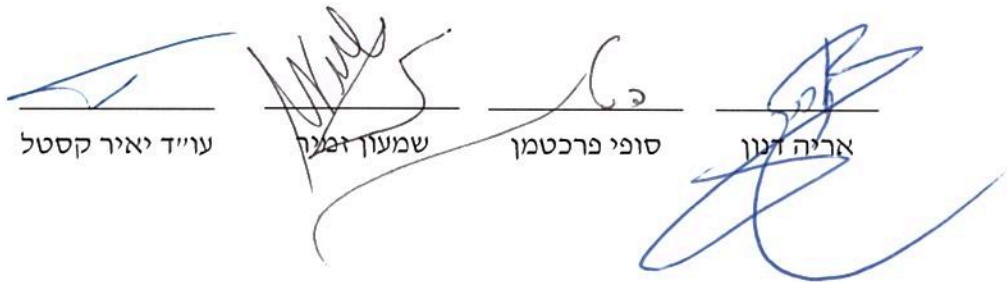 אריה דנון סופי פרכטמן שמעון זמיר עו״ד יאיר קסטל